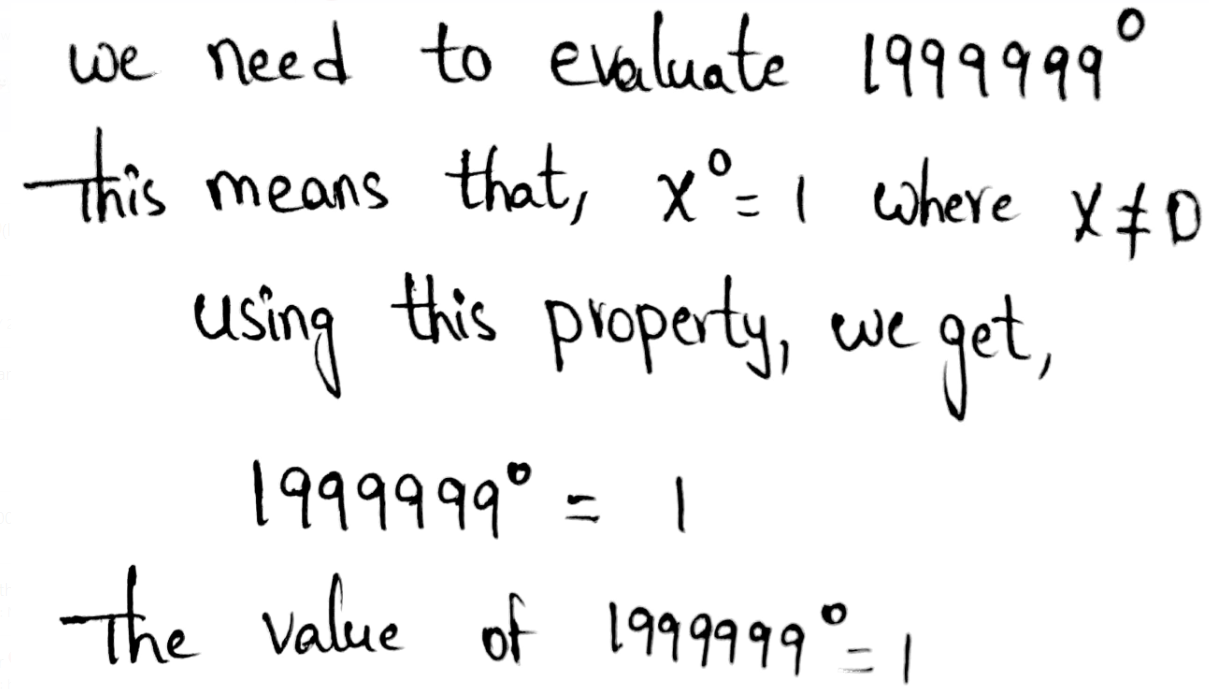 we need to evaluate 1999999⁰
This means that, x⁰ = 1 where x ≠ 0
using this property, we get,
1999999⁰ = 1
The value of 1999999⁰ = 1